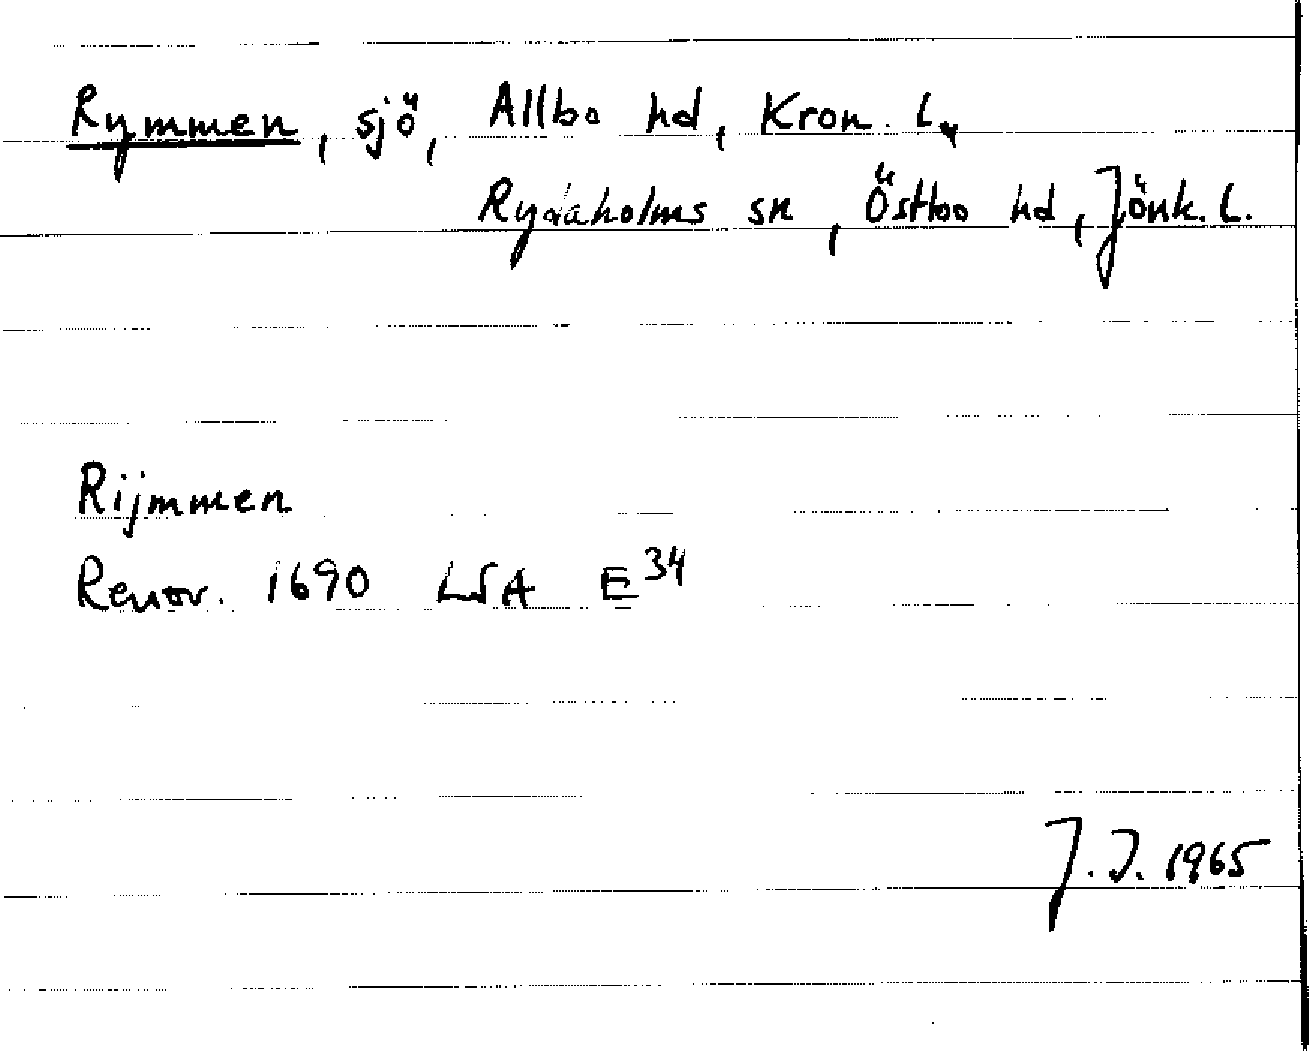 Rymmen, sjö, Allbo hd, Kron. L,
Rydaholms sn, Östbo hd, Jönk. L.
Rijmmen
Renov. 1690 LSA E34
J.J. 1965